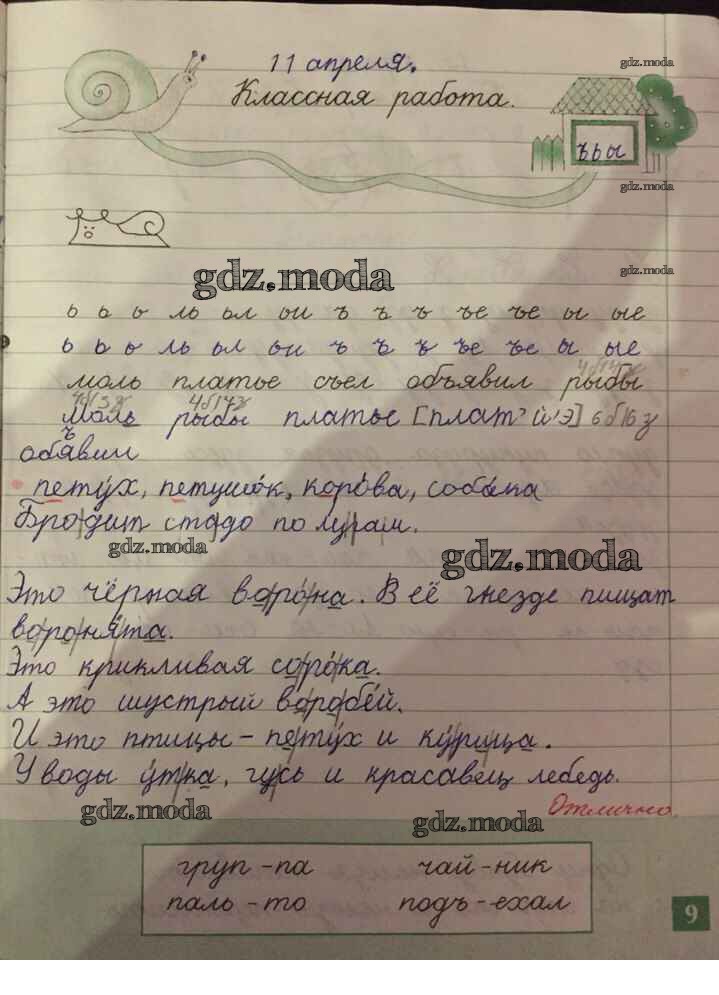 11 апреля.
gdz.moda
Классная работа.
ъ ь ы
gdz.moda
gdz.moda
gdz.moda
ь ь ь ль ьл ьи ъ ъ ъ ъе ъе ы ые
ь ь ь ль ьл ьи ъ ъ ъ ъе ъе ы ые
моль платье съел объявил рыбы
4б14з
моль рыбы платье [плат'й'э] 6б16з
ъ
обявил
петух, петушок, корова, собака
Бродит стадо по лугам.
gdz.moda
gdz.moda
Это чёрная ворона. В её гнезде пищат
воронята.
Это крикливая сорока.
А это шустрый воробей.
И это птицы - петух и курица.
У воды утка, гусь и красавец лебедь.
Отлично.
gdz.moda
gdz.moda
груп - па чай - ник
паль - то подъ - ехал
9